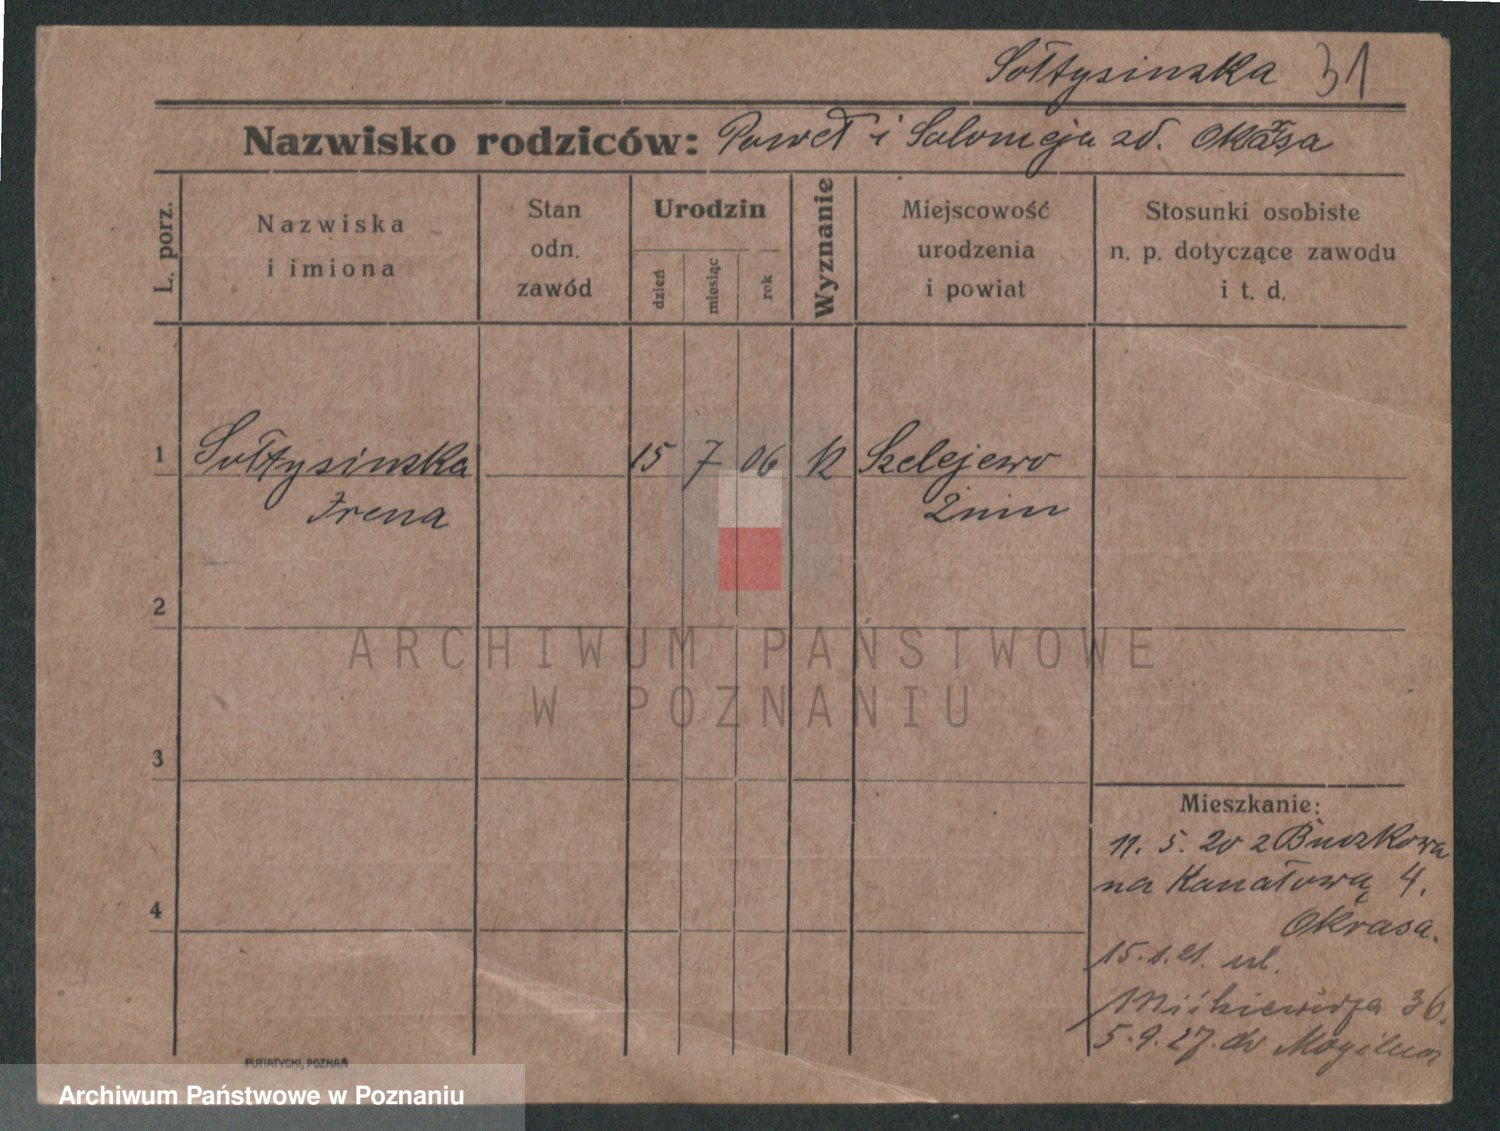 Sołtysinska 31
Nazwisko rodziców: Paweł i Salomeja zd. Okrasa
L. porz.
Nazwiska
i imiona
Stan
odn.
zawód
Urodzin
dzień
miesiąc
rok
Wyznanie
Miejscowość
urodzenia
i powiat
Stosunki osobiste
n. p. dotyczące zawodu
i t. d.
1 Sołtysinska 15 7 06 K Szelejewo
Irena Żnin
2
ARCHIWUM PAŃSTWOWE
W POZNANIU
3
Mieszkanie:
11. 5. 20 z Buszkowa
na Kanałową 4.
4
Okrasa.
15.1.21. ul.
Mickiewicza 36.
5.9.27. do Mogilna
PUTIATYCKI, POZNAŃ
Archiwum Państwowe w Poznaniu